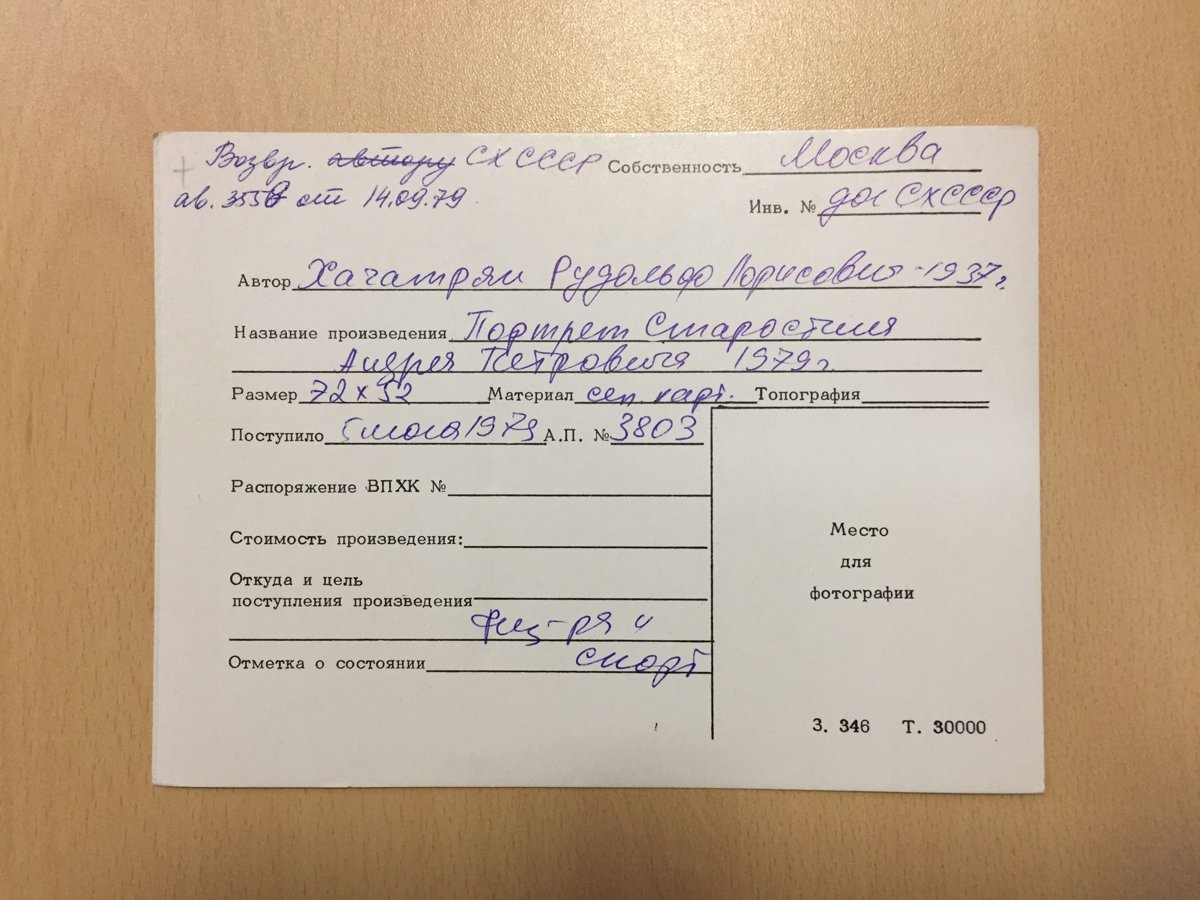 + Возвр. автору СХ СССР Собственность Москва
ав. 3559 от 14.09.79 Инв. № дог СХ СССР
Автор Хачатрян Рудольф Лорисович - 1937 г.
Название произведения Портрет Старостина
Андрея Петровича 1979 г.
Размер 72 х 52 Материал сеп. карт. Топография
Поступило 5 июля 1979 А.П. № 3803
Распоряжение ВПХК №
Стоимость произведения:
Откуда и цель
поступления произведения
физ-ра и
Отметка о состоянии спорт
Место
для
фотографии
З. 346 Т. 30000